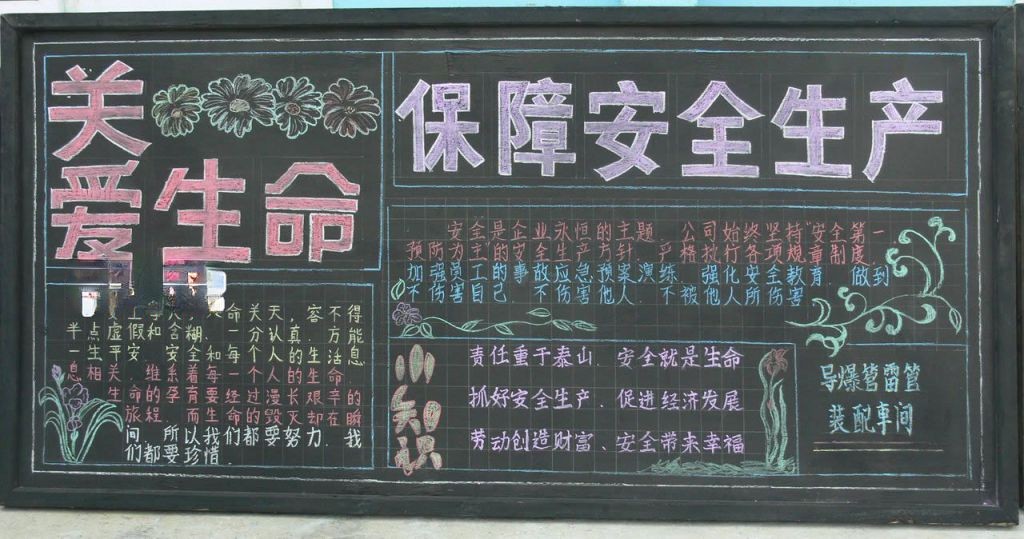 关
爱生命
命关天，容不得
半点虚假和含糊。一分认真，方能
一生平安。安全和每一个人的生活息
息相关，维系着每一个人的生命
生命的孕育要经过漫长艰辛的
旅程，而生命的毁灭却在瞬
间，所以我们都要努力，我
们都要珍惜。
保障安全生产
安全是企业永恒的主题，公司始终坚持"安全第一
预防为主"的安全生产方针，严格执行各项规章制度，
加强员工的事故应急预案演练，强化安全教育，做到
不伤害自己，不伤害他人，不被他人所伤害
小知识
责任重于泰山、安全就是生命
抓好安全生产、促进经济发展
劳动创造财富、安全带来幸福
导爆管雷管
装配车间